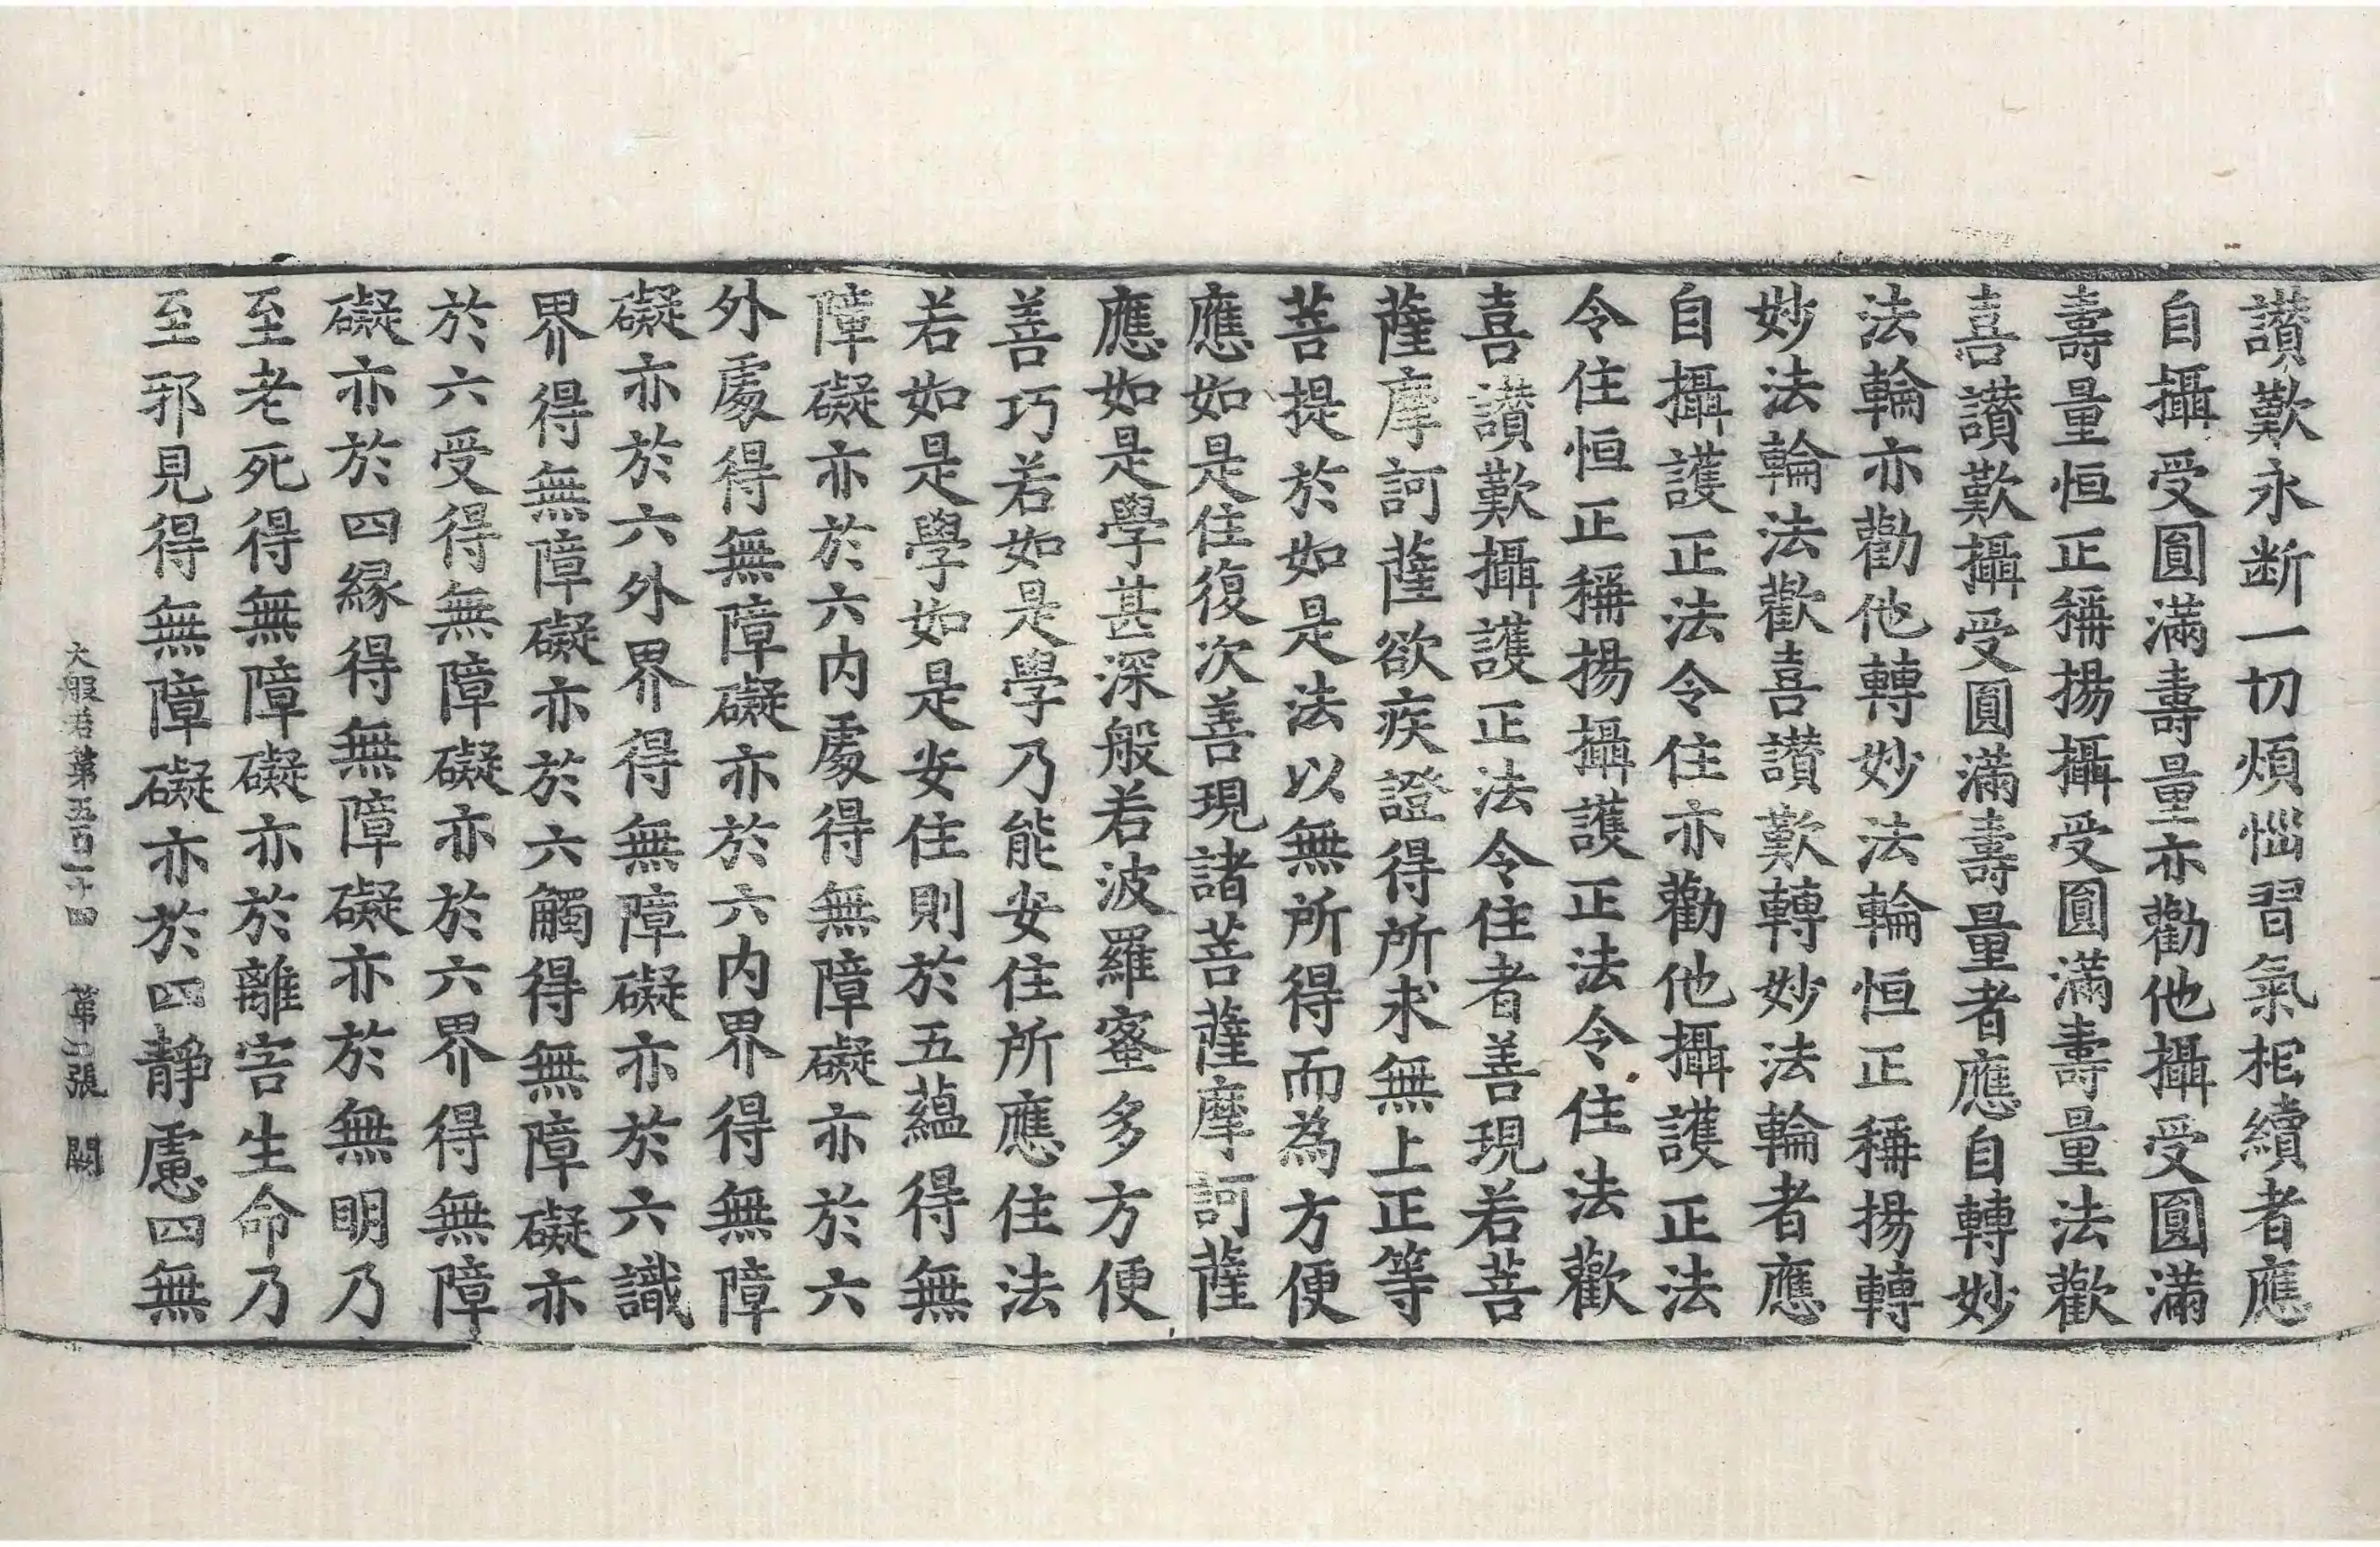 讃歎永断一切煩惱習氣相續者應
自攝受圓滿壽量亦勸他攝受圓滿
壽量恒正稱揚攝受圓滿壽量法歡
喜讃歎攝受圓滿壽量者應自轉妙
法輪亦勸他轉妙法輪恒正稱揚轉
妙法輪法歡喜讃歎轉妙法輪者應
自攝護正法令住亦勸他攝護正法
令住恒正稱揚攝護正法令住法歡
喜讃歎攝護正法令住者善現若菩
薩摩訶薩欲疾證得所求無上正等
菩提於如是法以無所得而為方便
應如是住復次善現諸菩薩摩訶薩
應如是學甚深般若波羅蜜多方便
善巧若如是學乃能安住所應住法
若如是學如是安住則於五蘊得無
障礙亦於六内處得無障礙亦於六
外處得無障礙亦於六内界得無障
礙亦於六外界得無障礙亦於六識
界得無障礙亦於六觸得無障礙亦
於六受得無障礙亦於六界得無障
礙亦於四縁得無障礙亦於無明乃
至老死得無障礙亦於離害生命乃
至邪見得無障礙亦於四靜慮四無
大般若第五百一十四 第二張 闕